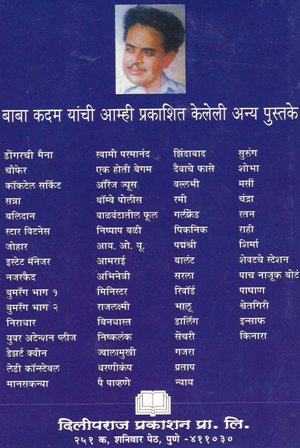 बाबा कदम यांची आम्ही प्रकाशित केलेली अन्य पुस्तके
डोंगरची मैना
चौफेर
कॉकटेल सर्किट
सन्ना
बलिदान
स्टार विटनेस
जोहार
इस्टेट मॅनेजर
नजरकैद
बुमरँग भाग १
बुमरँग भाग २
निराधार
युवर अटेन्शन प्लीज
डेझर्ट क्वीन
लेडी कॉन्स्टेबल
मानसकन्या
स्वामी परमानंद
एक होती बेगम
ऑरेंज ज्यूस
बॉम्बे पोलीस
वाळवंटातील फूल
निष्पाप बळी
आय. ओ. यू.
आमराई
अभिनेत्री
मिनिस्टर
राजलक्ष्मी
बिनधास्त
निष्कलंक
ज्वालामुखी
धरणीकंप
पैं पाव्हणे
झिंदाबाद
दैवाचे फासे
वल्लभी
रमी
गर्लफ्रेंड
पिकनिक
पद्मश्री
बालंट
सरला
रिवॉर्ड
भालू
डार्लिंग
सेंचरी
गजरा
प्रताप
न्याय
सुरुंग
शोभा
मर्सी
चंद्रा
रतन
राही
शिर्मा
शेवटचे स्टेशन
पाच नाजूक बोटं
पाषाण
श्वेतगिरी
इन्साफ
किनारा
दिलीपराज प्रकाशन प्रा. लि.
२५१ क, शनिवार पेठ, पुणे -४११०३०